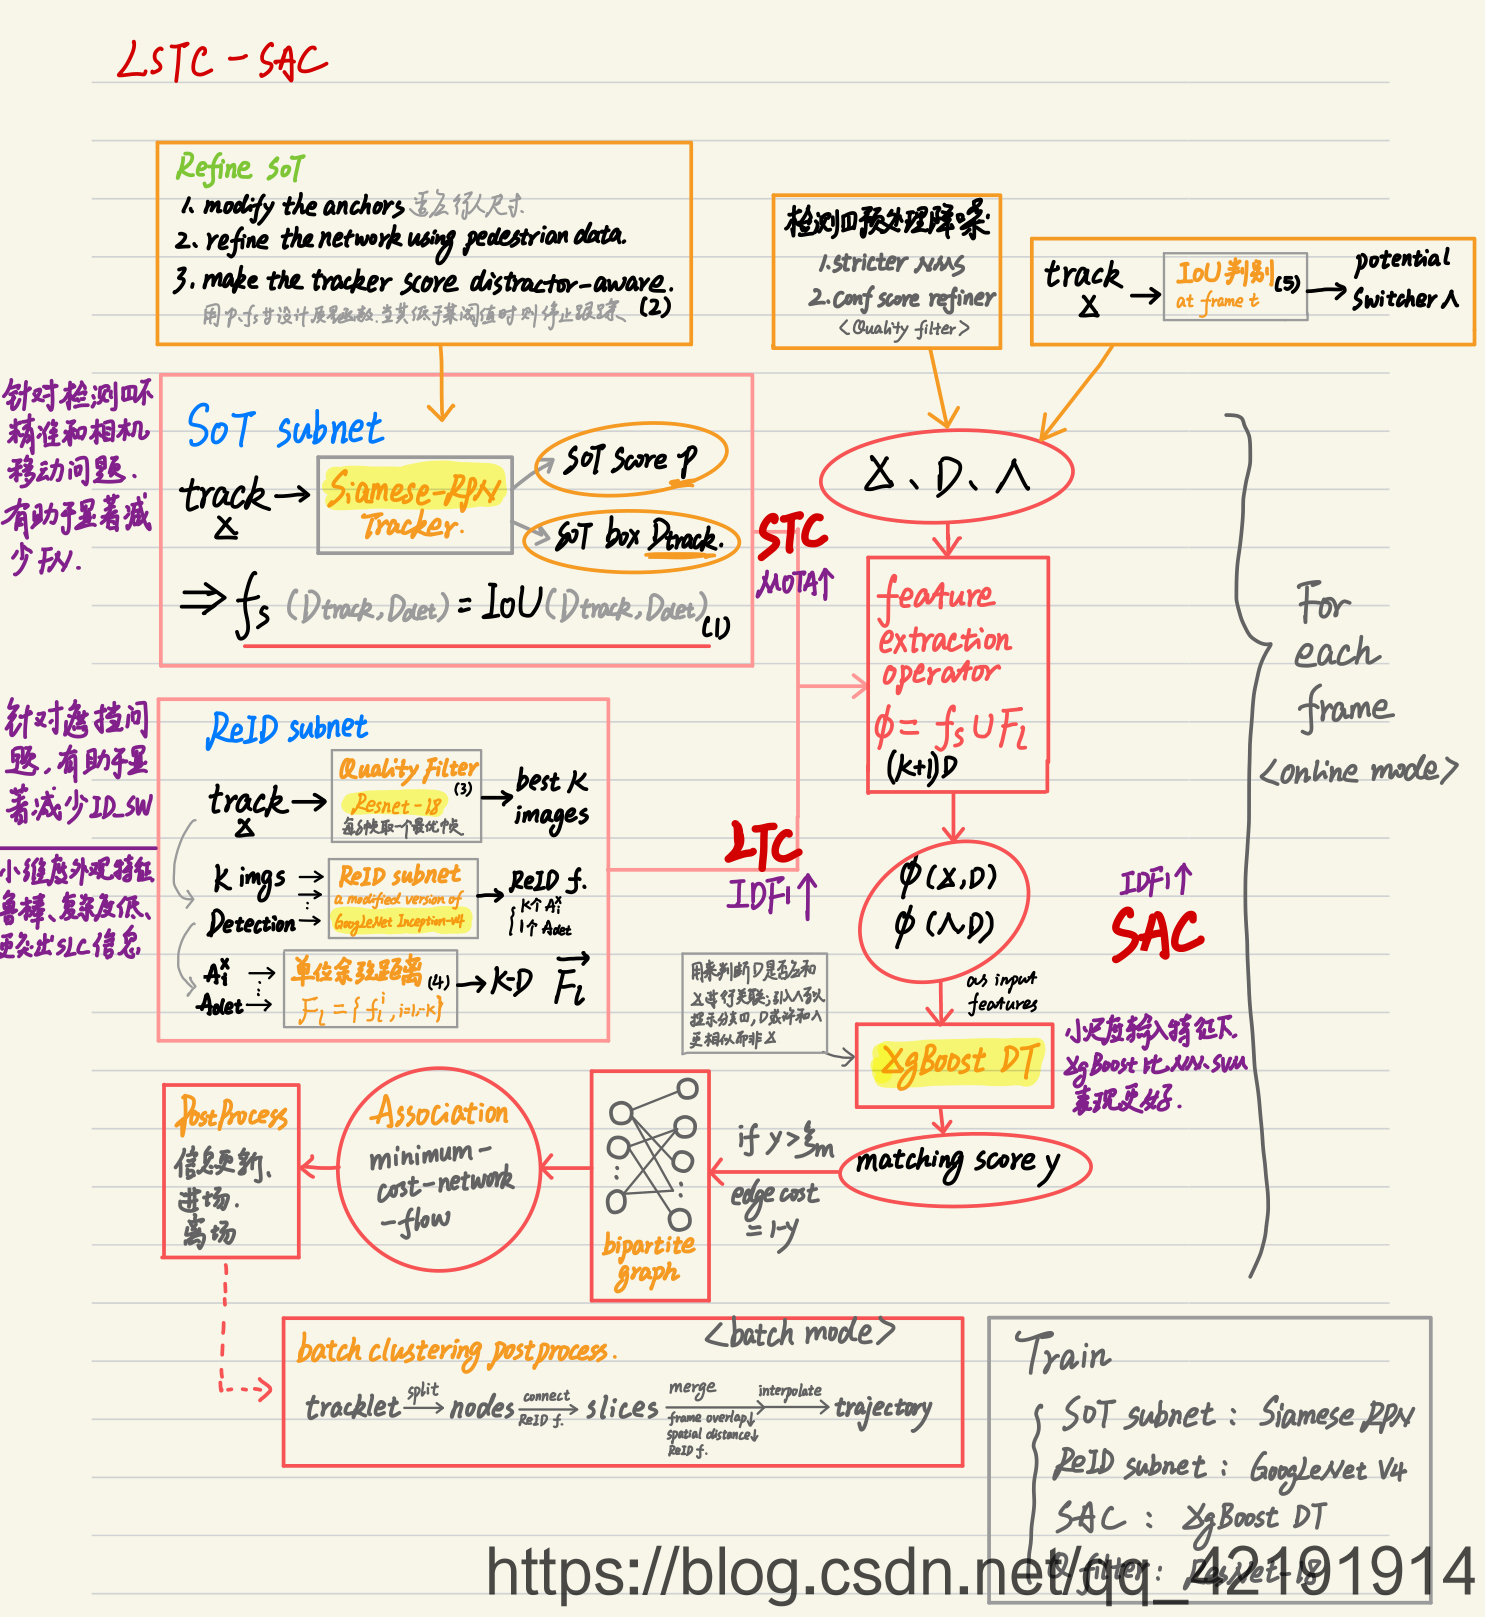 LSTC-SAC
Refine SOT
1. modify the anchors 适合行人尺寸.
2. refine the network using pedestrian data.
3. make the tracker score distractor-aware.
用p、fs廿设计质量函数.当其低于某阈值时则停止跟踪. (2)
检测四预处理降条.
1. stricter NMS
2. conf score refiner
<Quality filter>
track
X
IoU判别 (5)
at frame t
potential
switcher Λ
针对检测四不
精准和相机
移动问题.
有助于显著减
少FN.
SOT subnet
track
X
Siamese-RPN
Tracker.
SOT score p
SOT box Dtrack.
⇒ fs (Dtrack, Ddet) = IoU (Dtrack, Ddet) (1)
STC
MOTA↑
X、D、Λ
feature
extraction
operator
ϕ = fs ∪ Fl
(k+1)D
For
each
frame
<online mode>
针对遮挡问
题,有助于显
著减少ID_SW
小维度外观特征
鲁棒、复杂度低、
更突出SLC信息
ReID subnet
track
X
Quality Filter
Resnet-18 (3)
每s帧取一个最优帧
best K
images
K imgs
Detection
ReID subnet
a modified version of
GoogLeNet Inception-v4
ReID f.
K个 Aiˣ
1个 Adet
Aiˣ
Adet
单位余弦距离 (4)
Fl = {fl^i, i=1,-K}
K-D Fl
LTC
IDF1↑
ϕ(X,D)
ϕ(Λ,D)
IDF1↑
SAC
as input
features
用来判断D是否合和
X进行关联;引入Λ可以
提示分类四,D或许和Λ
更相似而非X
XgBoost DT
小尺度输入特征下.
XgBoost比NN.SVM
表现更好.
matching score y
if y>ξm
edge cost
=1-y
bipartite
graph
Association
minimum-
cost-network
-flow
PostProcess
信息更新、
进场.
离场
batch clustering postprocess.
<batch mode>
tracklet split nodes connect ReID f. slices merge frame overlap↓ spatial distance↓ ReID f. interpolate trajectory
Train
SOT subnet: Siamese RPN
ReID subnet: GoogLeNet V4
SAC: XgBoost DT
Q filter: ResNet-18
https://blog.csdn.net/qq_42191914